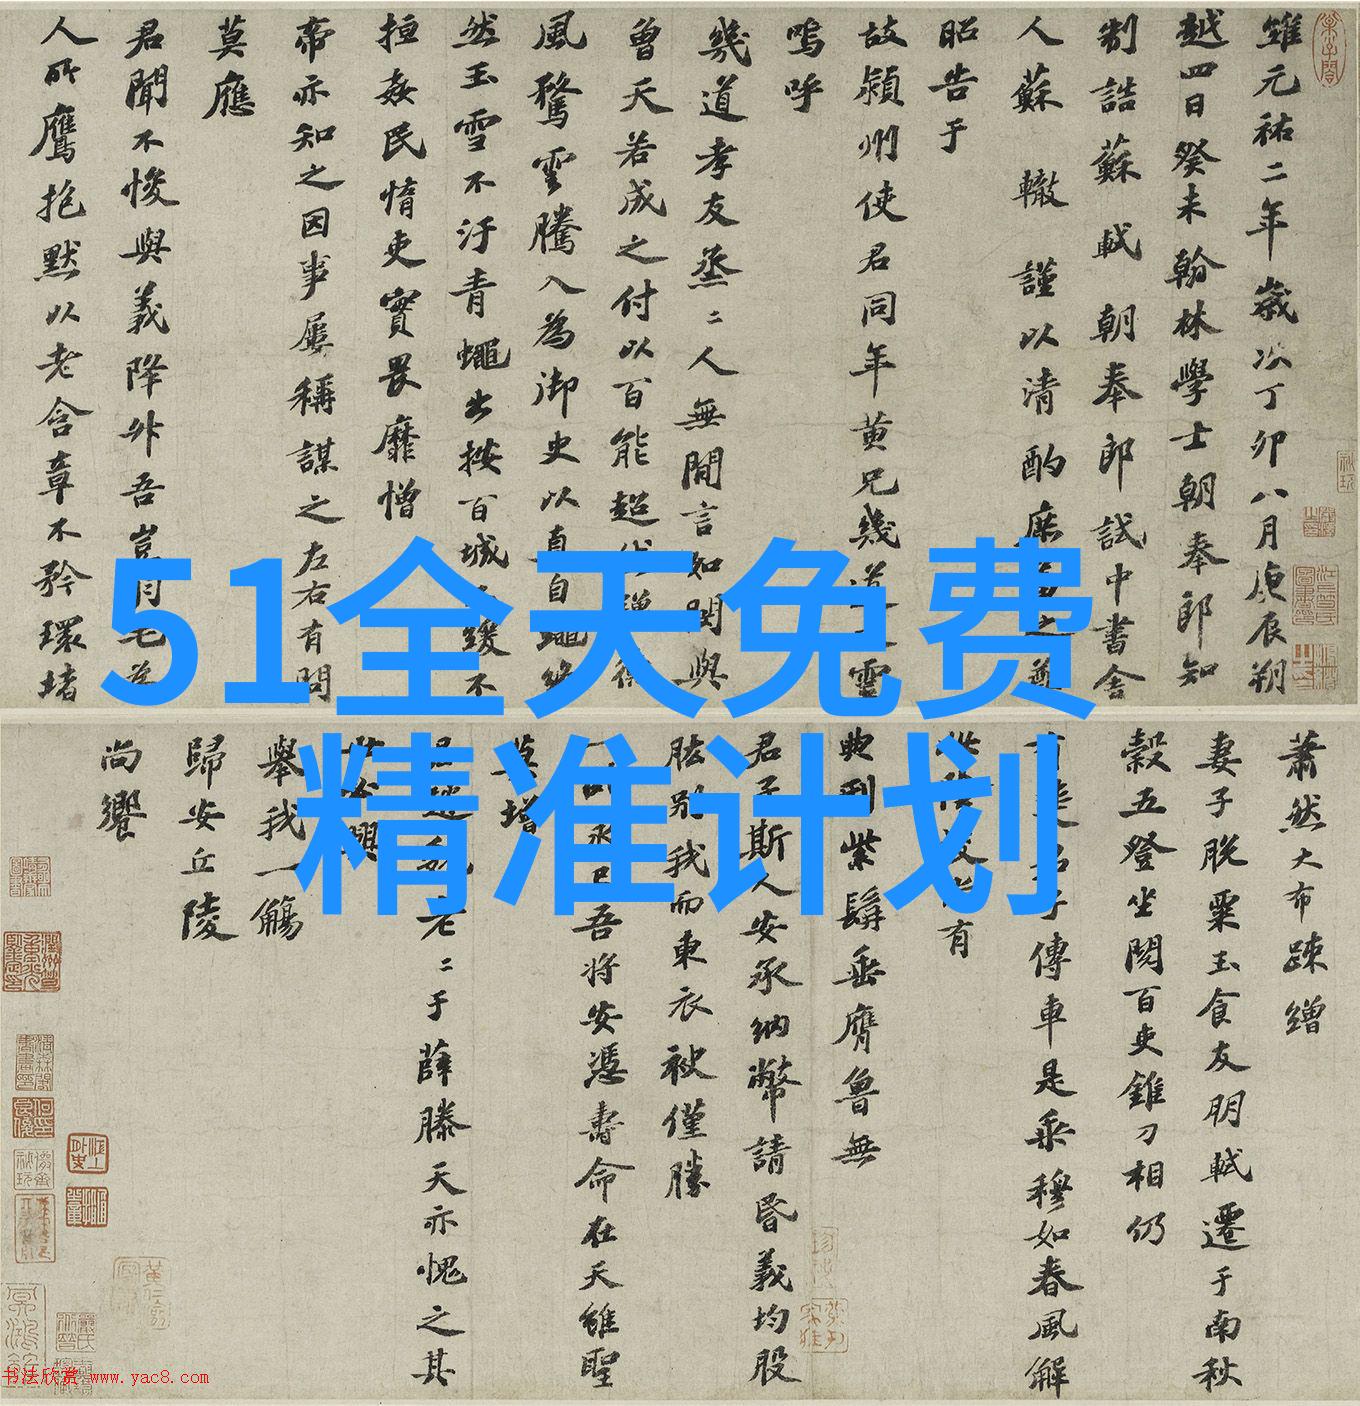 51全天免费
精准计划
維元祐二年歲次丁卯八月庚辰朔
越四日癸未翰林學士朝奉郎知
制誥蘇軾朝奉郎試中書舍
人蘇轍謹以清酌庶羞之奠
昭告于
故潁州使君同年黄兄幾道之靈
嗚呼
幾道孝友烝二人無閒言如閔與
曾天若成之付以百能超
風騖雲騰入為御史以直自繩終
然玉雪不汙青蠅出按百城不緩不
拒姦民惰吏實畏靡憎
帝亦知之因事屢稱謀之左右有問
莫應
君聞不悛與義降升吾豈有
人所鷹抱默以老含章不矜環堵
蕭然大布疎繒
妻子脱粟玉食友朋軾遷于南秋
穀五登坐閱百吏錐刀相仍
有斐君子傳車是乘穆如春風解
尚有
典刑紫髯垂膺魯無
君子斯人安承納幣請昏義均股
肱别我而東衣袂僅勝
吾將安憑壽命在天雖聖
莫增
老二于薛滕天亦愧之其
興
舉我一觴
歸安丘陵
尚饗
书法欣赏 www.yac8.com